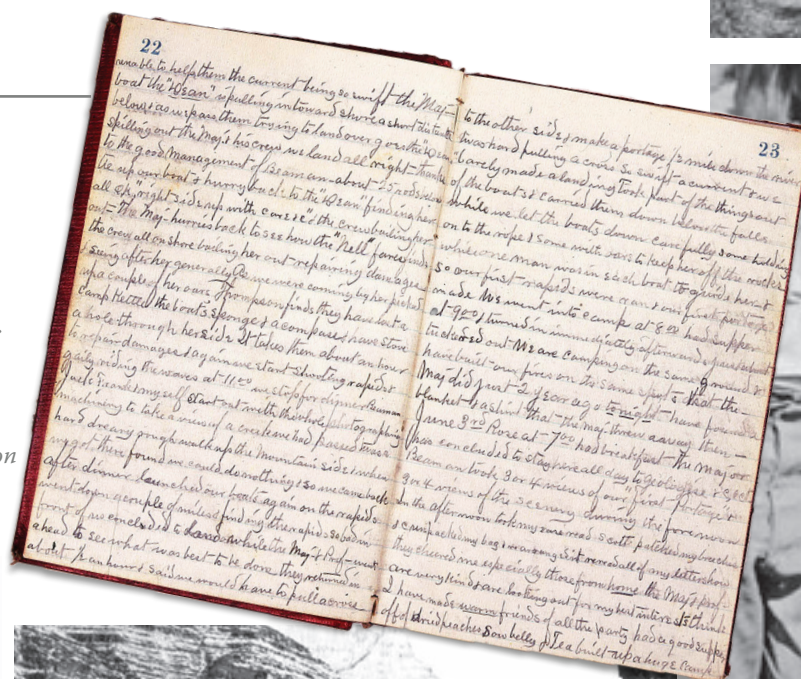 22
unable to help them the current being so swift the Maj—
boat the "Dean" is pulling in toward shore a short distance
below & as we pass them trying to land over goes the "Dean"
spilling out the Maj. & his crew we land all right—thanks
to the good management of Beaman—about 25 rods below
tie up our boat & hurry back to the "Dean" finding her
all OK, "right side up with care" & the crew bailing her
out—The Maj—hurries back to see how the "Nell" fares finds
the crew all on shore bailing her out repairing damages
& seeing after her generally As we were coming by her picked
up a couple of her oars Thompson finds they have lost a
camp kettle the boats sponge & a compass & have stove
a hole through her side It takes them about an hour
to repair damages & again we start shooting rapids &
gaily riding the waves at 11:00 we stop for dinner Beaman
Jack & myself start out with the whole photographing
machinery to take a view of a creek we had passed It was a
hard dreary rough walk up the Mountain side & when
we got there found we could do nothing & so we came back
after dinner launched our boats again on the rapids &
went down a couple of miles & finding the rapids so bad in
front of us concluded to land while the Maj & Prof—went
ahead to see what was best to be done they returned in
about ½ an hour & said we would have to pull across
23
to the other side & make a portage ½ mile down the river
twas hard pulling across so swift a current & we
barely made a landing took part of the things out
of the boats & carried them down below the falls
while we let the boats down carefully some holding
on to the rope & some with oars to keep her off the rocks
while one man was in each boat to guide her &
so our first rapids were run & our first portage
made We went into camp at 8:00 had supper
at 9:00 & turned in immediately afterwards
tuckered out We are camping on the same ground &
have built our fires on the same spot—that the
Maj did just 2 years ago tonight—have found a
blanket & a shirt that the Maj. threw away then—
June 3rd Rose at 7:00 had breakfast—the Major
has concluded to stay here all day to Geologize &
Beaman took 3 or 4 views of our first portage &
3 or 4 views of the scenery during the forenoon
In the afternoon took my read Scott patched my breeches
& unpacked my bag & rearranged it reread all of my letters how
they cheered me especially those from home the Maj & Prof—
are very kind & are looking out for my best interests think
I have made warm friends of all the party had a good supper
off of dried peaches Sow belly & Tea built up a huge Camp